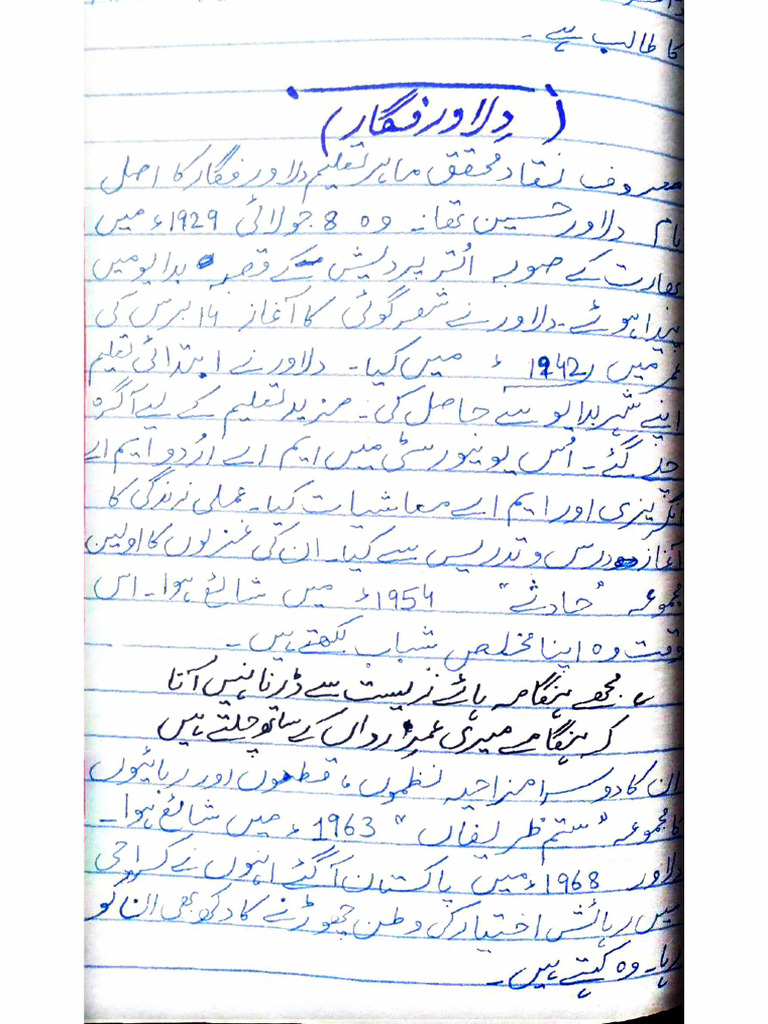 کا طالب ہے۔
(دِلاور فگار)
معروف نقاد محقق ماہر تعلیم دلاور فگار کا اصل
نام دلاور حسین تھا۔ وہ 8 جولائی 1929ء میں
بھارت کے صوبہ اُتر پردیش کے قصبہ بدایو میں
پیدا ہوئے۔ دلاور نے شعر گوئی کا آغاز 14 برس کی
عمر میں 1942ء میں کیا۔ دلاور نے ابتدائی تعلیم
اپنے شہر بدایو سے حاصل کی۔ مزید تعلیم کے لیے آگرہ
چلے گئے۔ اُس یونیورسٹی میں ایم اے اُردو ایم اے
انگریزی اور ایم اے معاشیات کیا۔ عملی زندگی کا
آغاز درس و تدریس سے کیا۔ ان کی غزلوں کا اولین
مجموعہ "حادثے" 1954ء میں شائع ہوا۔ اس
وقت وہ اپنا مخلص شباب لکھتے ہیں۔
مجھے ہنگامہ ہائے زیست سے ڈرنا نہیں آتا
کہ ہنگامے میری عمرِ رواں کے ساتھ چلتے ہیں
ان کا دوسرا مزاحیہ نظموں، قطعوں اور ربائیوں
کا مجموعہ "ستم ظریفاں" 1963ء میں شائع ہوا۔
دلاور 1968ء میں پاکستان آ گئے انہوں نے کراچی
میں رہائش اختیار کی وطن چھوڑنے کا دکھ بھی ان کو
رہا۔ وہ کہتے ہیں۔